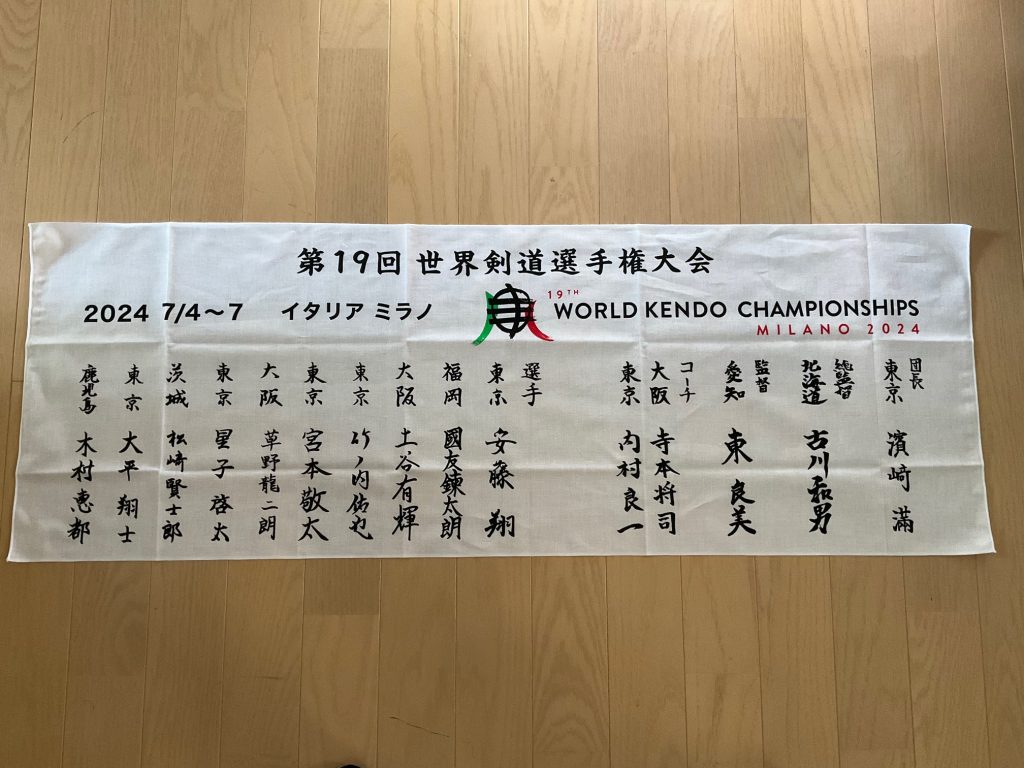 第19回 世界剣道選手権大会
2024 7/4～7 イタリア ミラノ
19TH
WORLD KENDO CHAMPIONSHIPS
MILANO 2024
団長
東京 濱﨑 滿
総監督
北海道 古川和男
監督
愛知 東 良美
コーチ
大阪 寺本将司
東京 内村良一
選手
東京 安藤 翔
福岡 國友鍊太朗
大阪 土谷有輝
東京 竹ノ内佑也
東京 宮本敬太
大阪 草野龍二朗
東京 星子啓太
茨城 松﨑賢士郎
東京 大平翔士
鹿児島 木村恵都